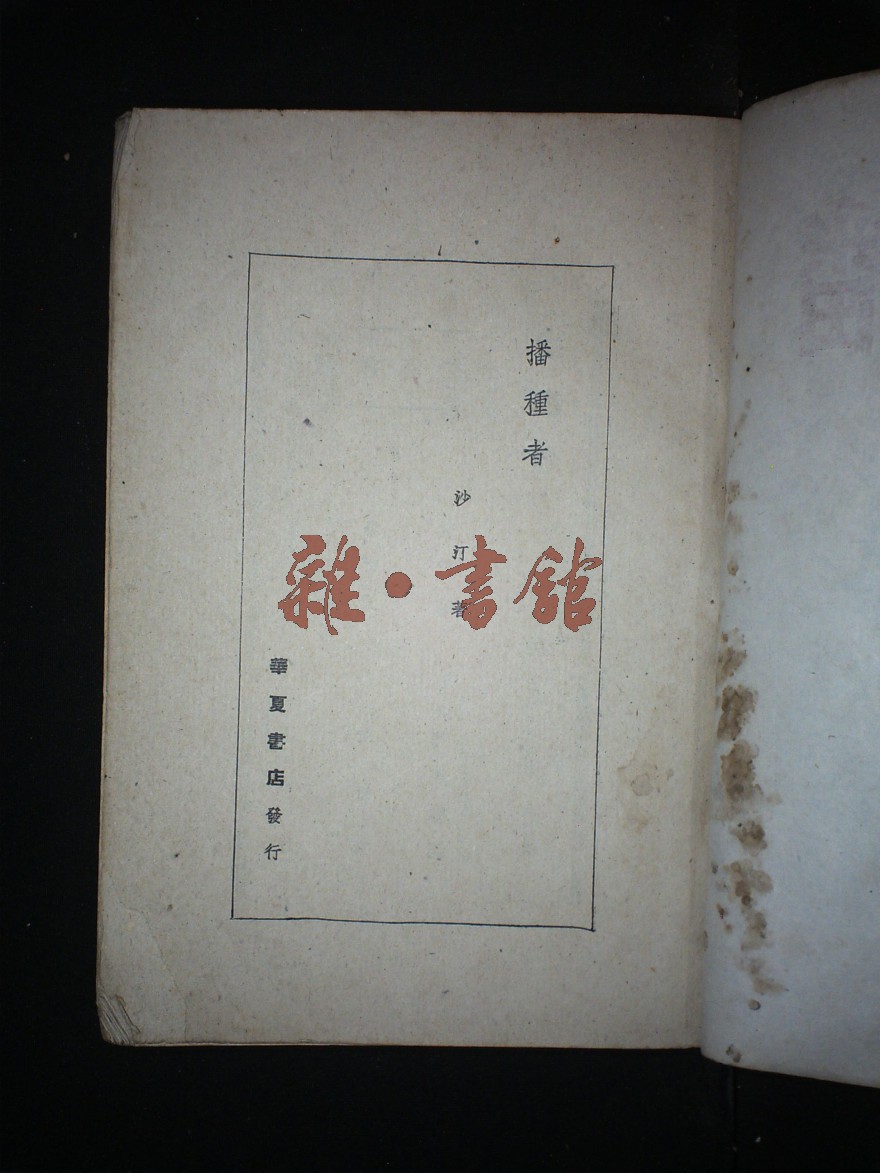 播種者
沙汀著
華夏書店發行
雜·書館